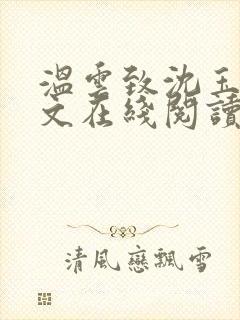 溫雲致沈玉
文在綫閱讀
清風戀飄雪